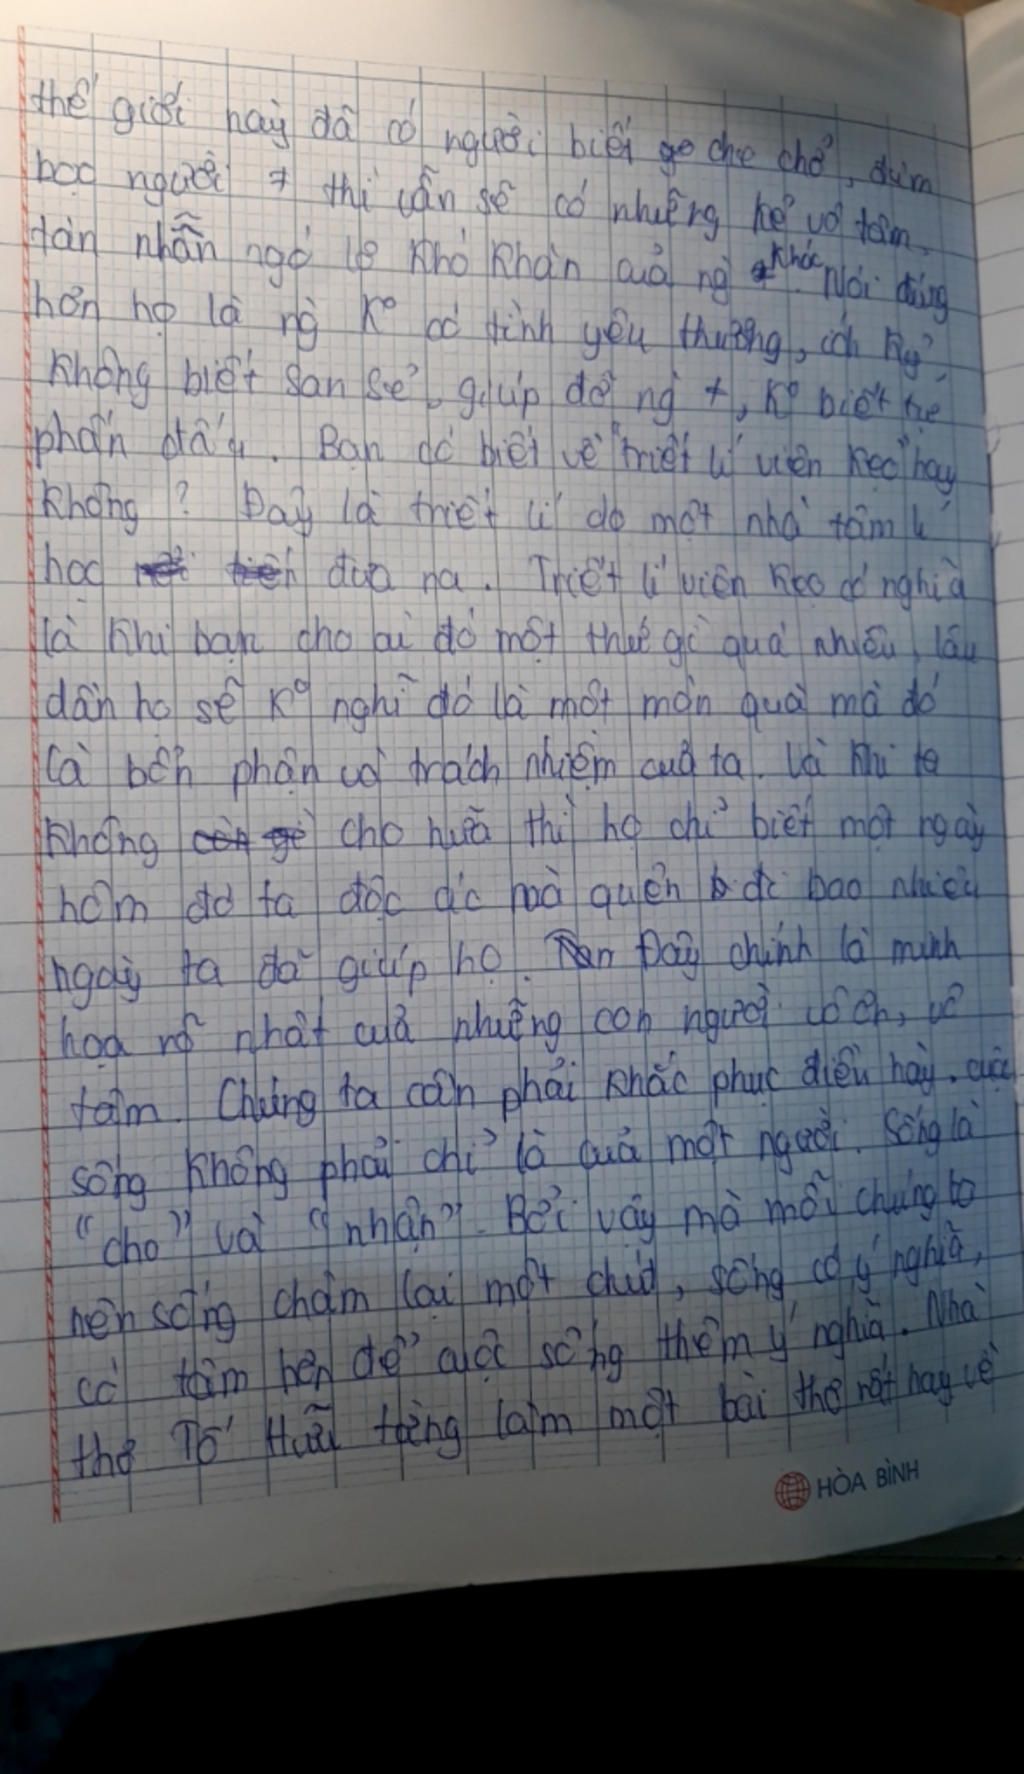 thế giới này đã có người biết che chở, đùm
bọc người ≠ thì vẫn sẽ có những kẻ vô tâm,
tàn nhẫn ngó lơ khó khăn của ng khác. Nói đúng
hơn họ là ng K° có tình yêu thương, ích kỷ,
không biết san sẻ, giúp đỡ ng ≠, K° biết
phấn đấu. Bạn có biết về "triết lí viên kẹo" hay
không? Đây là triết lí do một nhà tâm lí
học đưa ra. Triết lí viên kẹo có nghĩa
là khi bạn cho ai đó một thứ gì quá nhiều, lâu
dần họ sẽ K° nghĩ đó là một món quà mà đó
là bổn phận và trách nhiệm của ta. Và khi ta
không cho nữa thì họ chỉ biết một ngày
hôm đó ta độc ác mà quên đi bao nhiêu
ngày ta đã giúp họ. Đây chính là minh
họa rõ nhất của những con người vô ơn, vô
tâm. Chúng ta cần phải khắc phục điều này. cuộc
sống không phải chỉ là của một người. Sống là
"cho" và "nhận". Bởi vậy mà mỗi chúng ta
nên sống chậm lại một chút, sống có ý nghĩa,
có tâm hơn để cuộc sống thêm ý nghĩa. Nhà
thơ Tố Hữu từng làm một bài thơ rất hay về
HÒA BÌNH